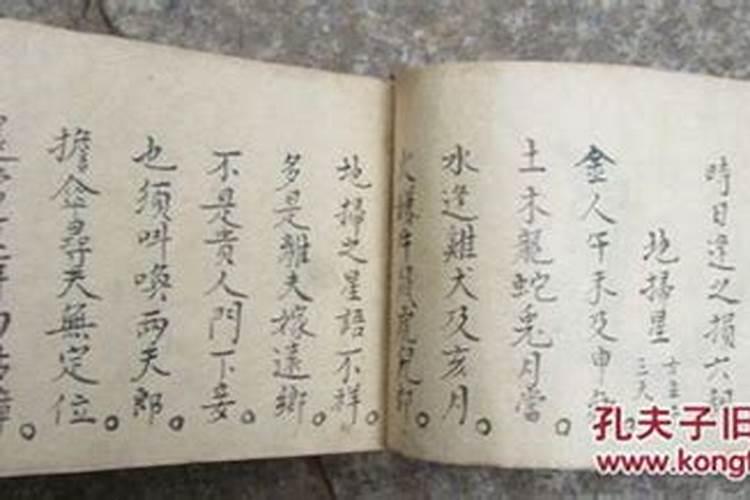 時日逢之損六
地掃星
金人午未及申
土木龍蛇兔月當
水逢雞犬及亥月
地掃之星語不祥
多是離夫嫁遠鄉
不是貴人門下妾
也須叫喚兩天郎
擔傘尋天無定位
孔夫子旧
www.kongf